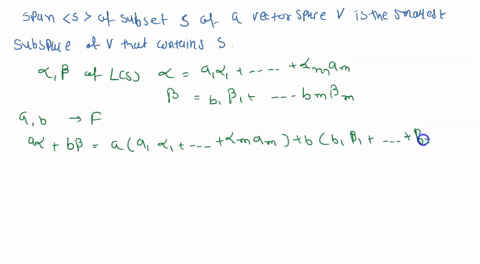 Span <S> of subset S of a vector space V is the smallest
subspace of V that contains S.
α, β of L(S) α = a₁α₁ + ..... + αₘaₘ
β = b₁β₁ + ..... bₘβₘ
a, b → F
aα + bβ = a(a₁α₁ + ... + αₘaₘ) + b(b₁β₁ + ... + β